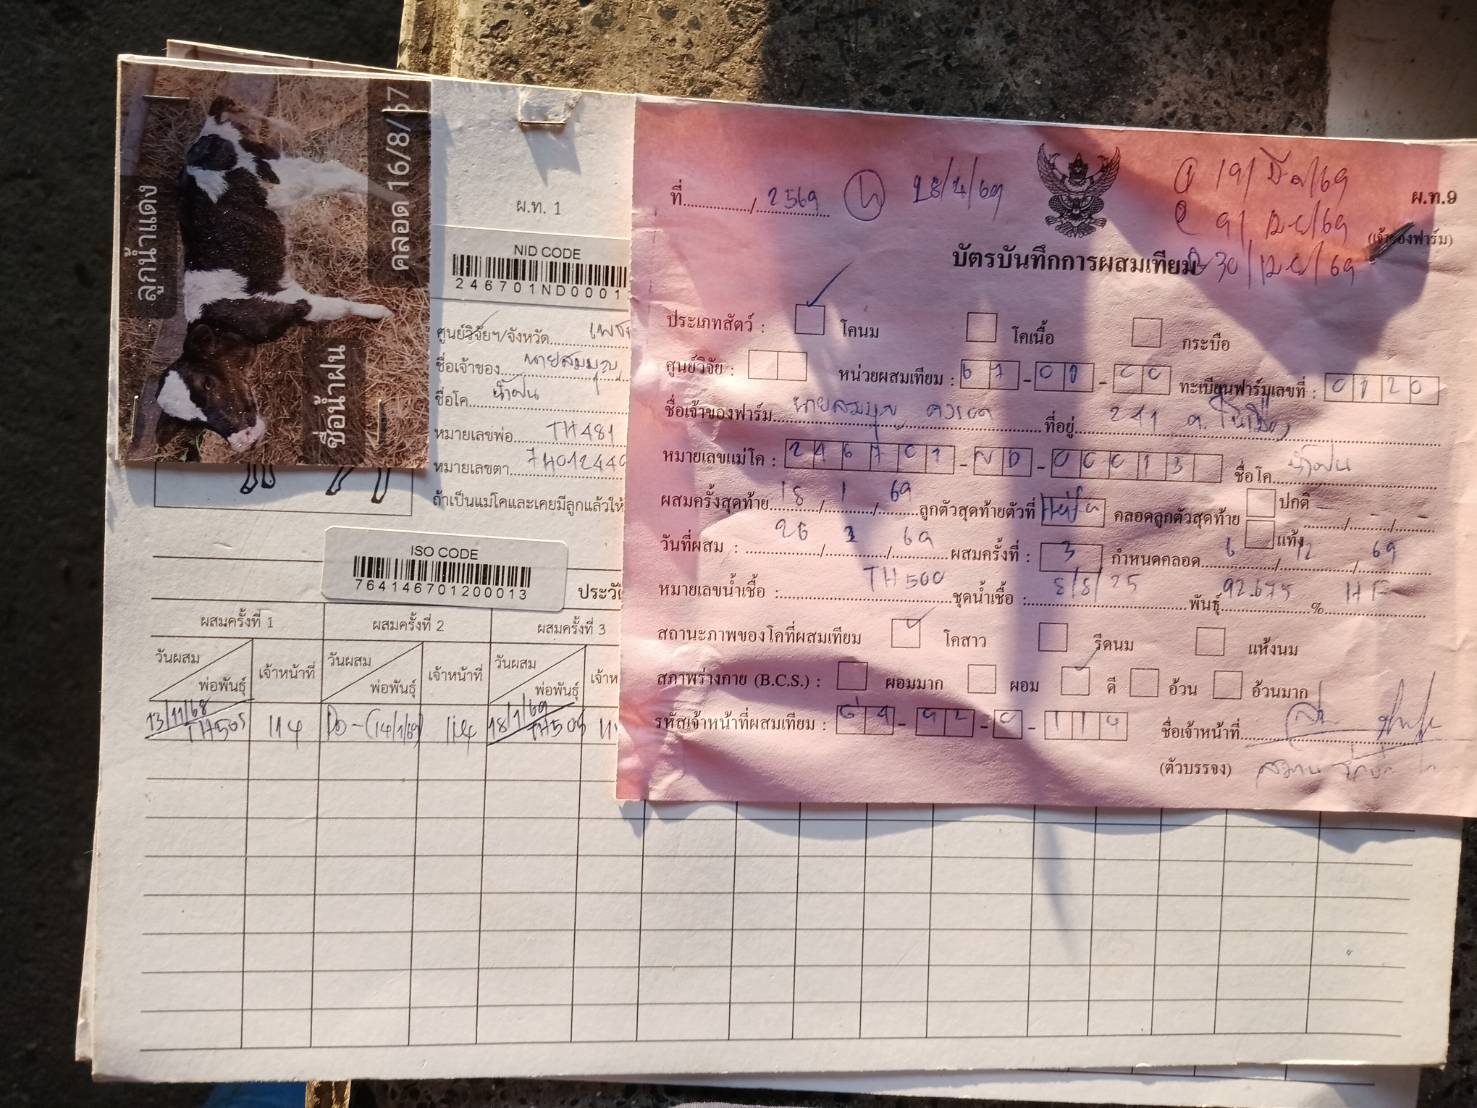 ลูกน้ำแดง
คลอด 16/8/67
ชื่อน้ำฝน
ผ.ท. 1
NID CODE
246701ND0001
ศูนย์วิจัยฯ/จังหวัด
ชื่อเจ้าของ นายสมบุญ
ชื่อโค น้ำฝน
หมายเลขพ่อ TH481
หมายเลขตา
ถ้าเป็นแม่โคและเคยมีลูกแล้วให้
ISO CODE
764146701200013
ประวัติ
ผสมครั้งที่ 1 ผสมครั้งที่ 2 ผสมครั้งที่ 3
วันผสม พ่อพันธุ์ เจ้าหน้าที่ วันผสม พ่อพันธุ์ เจ้าหน้าที่ วันผสม พ่อพันธุ์ เจ้าห
13/11/68 TH505 114 (14/1/69) 114 18/1/69 TH505
ที่ / 2569 28/4/69
19/มี.ค/69
9/เม.ย/69
30/เม.ย/69
ผ.ท.9
(เจ้าของฟาร์ม)
บัตรบันทึกการผสมเทียม
ประเภทสัตว์ : โคนม โคเนื้อ กระบือ
ศูนย์วิจัย : หน่วยผสมเทียม : 67-01-00 ทะเบียนฟาร์มเลขที่ : 0120
ชื่อเจ้าของฟาร์ม นายสมบุญ ที่อยู่ 241
หมายเลขแม่โค : 246701-ND-00013 ชื่อโค น้ำฝน
ผสมครั้งสุดท้าย 18/1/69 ลูกตัวสุดท้ายตัวที่ คลอดลูกตัวสุดท้าย ปกติ / /
แท้ง
วันที่ผสม : 26/ /69 ผสมครั้งที่ : 3 กำหนดคลอด 6/12/69
หมายเลขน้ำเชื้อ : TH500 ชุดน้ำเชื้อ : 8/8/25 พันธุ์ 92.675 % HF
สถานะภาพของโคที่ผสมเทียม โคสาว รีดนม แห้งนม
สภาพร่างกาย (B.C.S.) : ผอมมาก ผอม ดี อ้วน อ้วนมาก
รหัสเจ้าหน้าที่ผสมเทียม : ชื่อเจ้าหน้าที่
(ตัวบรรจง)